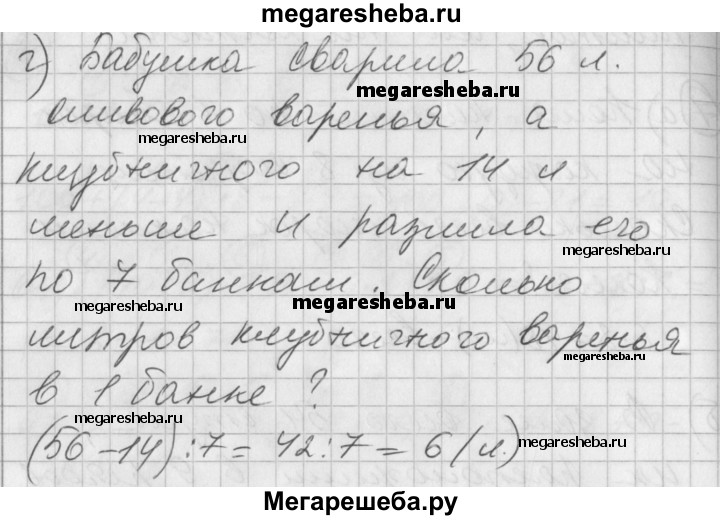 megaresheba.ru
г) Бабушка сварила 56 л.
megaresheba.ru
сливового варенья, а
megaresheba.ru
клубничного на 14 л
меньше и разлила его
megaresheba.ru
по 7 банкам. Сколько
megaresheba.ru
литров клубничного варенья
megaresheba.ru
в 1 банке?
megaresheba.ru
(56-14):7=42:7=6 (л.)
megaresheba.ru
Мегарешеба.ру